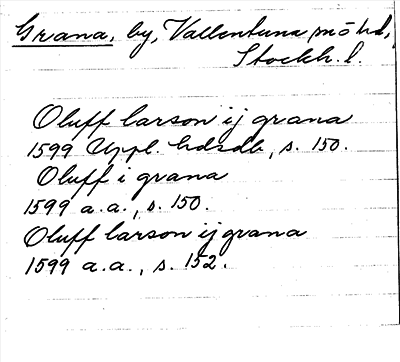 Grana, by, Vallentuna sn o hd,
Stockh. l.
Oluff larson ij grana
1599 Uppl. hdsdb, s. 150.
Oluff i grana
1599 a.a., s. 150.
Oluff larson ij grana
1599 a.a., s. 152.